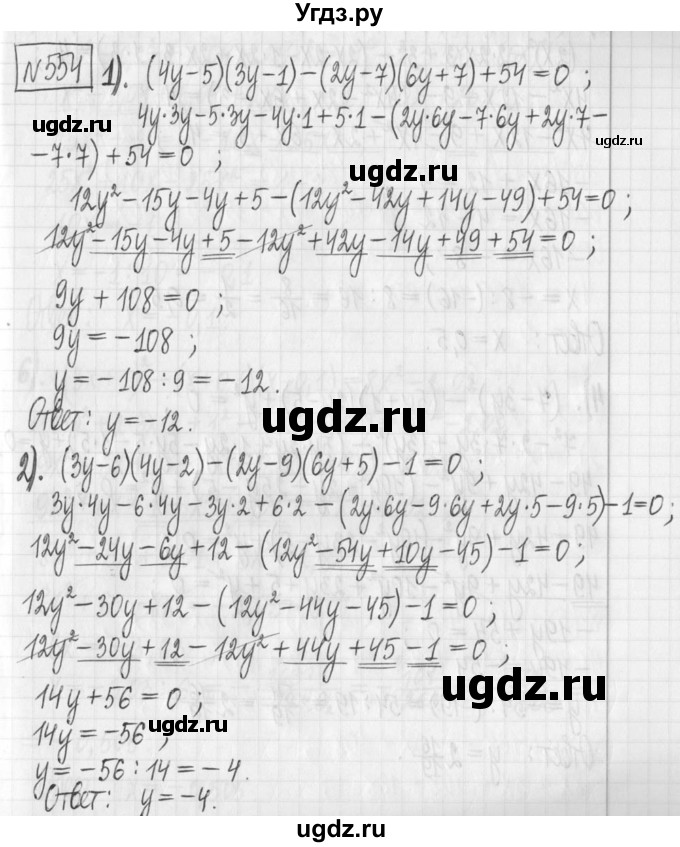 Угдз.ру
№554 1). (4y-5)(3y-1)-(2y-7)(6y+7)+54=0 ;
4y·3y-5·3y-4y·1+5·1-(2y·6y-7·6y+2y·7-
-7·7)+54=0 ;
12y²-15y-4y+5-(12y²-42y+14y-49)+54=0 ;
12y²-15y-4y+5-12y²+42y-14y+49+54=0 ;
9y+108=0 ;
9y=-108 ;
y=-108:9=-12.
Ответ: y=-12.
2). (3y-6)(4y-2)-(2y-9)(6y+5)-1=0 ;
3y·4y-6·4y-3y·2+6·2-(2y·6y-9·6y+2y·5-9·5)-1=0;
12y²-24y-6y+12-(12y²-54y+10y-45)-1=0 ;
12y²-30y+12-(12y²-44y-45)-1=0 ;
12y²-30y+12-12y²+44y+45-1=0 ;
14y+56=0 ;
14y=-56 ;
y=-56:14=-4.
Ответ: y=-4.
ugdz.ru
ugdz.ru
ugdz.ru
ugdz.ru
ugdz.ru
ugdz.ru
ugdz.ru
ugdz.ru